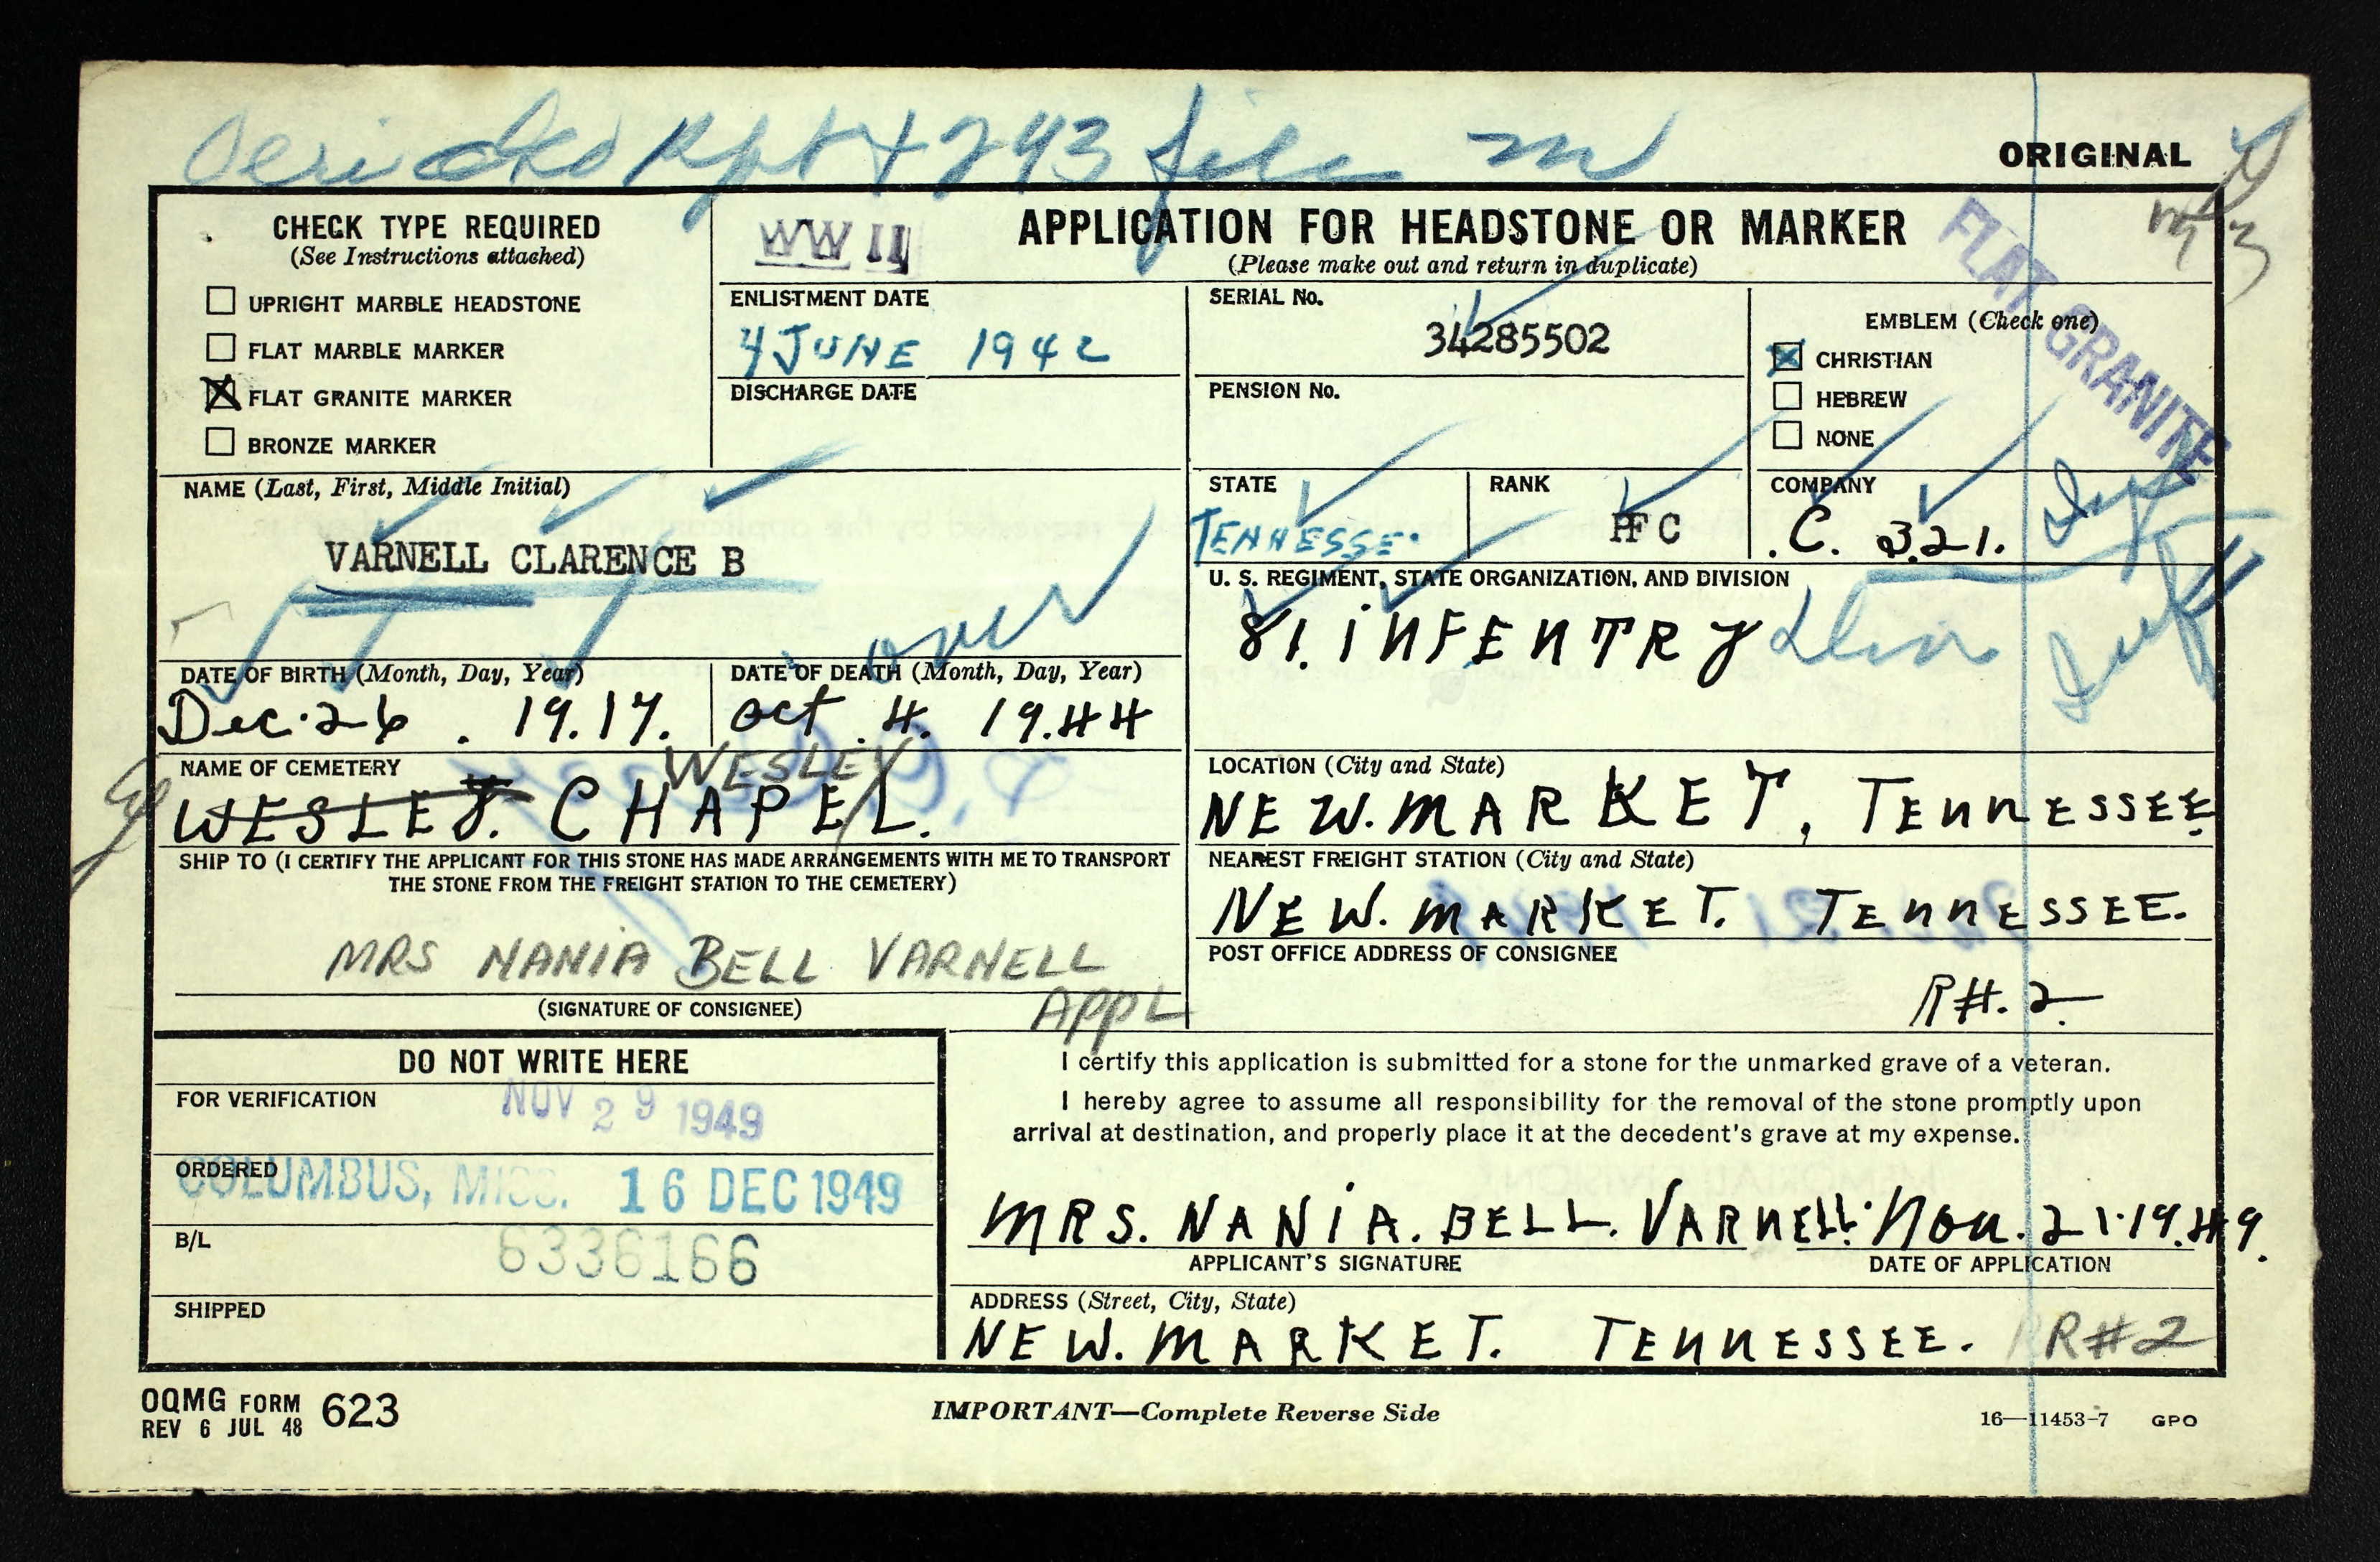 Rpt 4293 file
ORIGINAL
CHECK TYPE REQUIRED
(See Instructions attached)
UPRIGHT MARBLE HEADSTONE
FLAT MARBLE MARKER
FLAT GRANITE MARKER
BRONZE MARKER
WW II
APPLICATION FOR HEADSTONE OR MARKER
(Please make out and return in duplicate)
FLAT GRANITE
ENLISTMENT DATE
4 JUNE 1942
DISCHARGE DATE
SERIAL No.
34285502
PENSION No.
EMBLEM (Check one)
CHRISTIAN
HEBREW
NONE
NAME (Last, First, Middle Initial)
VARNELL CLARENCE B
over
STATE
TENNESSE.
RANK
PFC
COMPANY
.C. 321. Inf
U. S. REGIMENT, STATE ORGANIZATION, AND DIVISION
81. iNFENTRY Div
DATE OF BIRTH (Month, Day, Year)
Dec. 26. 19.17.
DATE OF DEATH (Month, Day, Year)
Oct. 4. 19.44
NAME OF CEMETERY
WESLEY
WESLEY. CHAPEL.
LOCATION (City and State)
NEW. MARKET, TENNESSEE
SHIP TO (I CERTIFY THE APPLICANT FOR THIS STONE HAS MADE ARRANGEMENTS WITH ME TO TRANSPORT
THE STONE FROM THE FREIGHT STATION TO THE CEMETERY)
MRS NANIA BELL VARNELL
APPL
(SIGNATURE OF CONSIGNEE)
NEAREST FREIGHT STATION (City and State)
NEW. MARKET. TENNESSEE.
POST OFFICE ADDRESS OF CONSIGNEE
R#. 2
DO NOT WRITE HERE
FOR VERIFICATION
NOV 29 1949
ORDERED
COLUMBUS, MISS. 16 DEC 1949
B/L
6336166
SHIPPED
I certify this application is submitted for a stone for the unmarked grave of a veteran.
I hereby agree to assume all responsibility for the removal of the stone promptly upon
arrival at destination, and properly place it at the decedent's grave at my expense.
MRS. NANiA. BELL. VARNELL. Nov. 21.19.49.
APPLICANT'S SIGNATURE
DATE OF APPLICATION
ADDRESS (Street, City, State)
NEW. MARKET. TENNESSEE. R#2
OQMG FORM 623
REV 6 JUL 48
IMPORTANT—Complete Reverse Side
16—11453-7 GPO